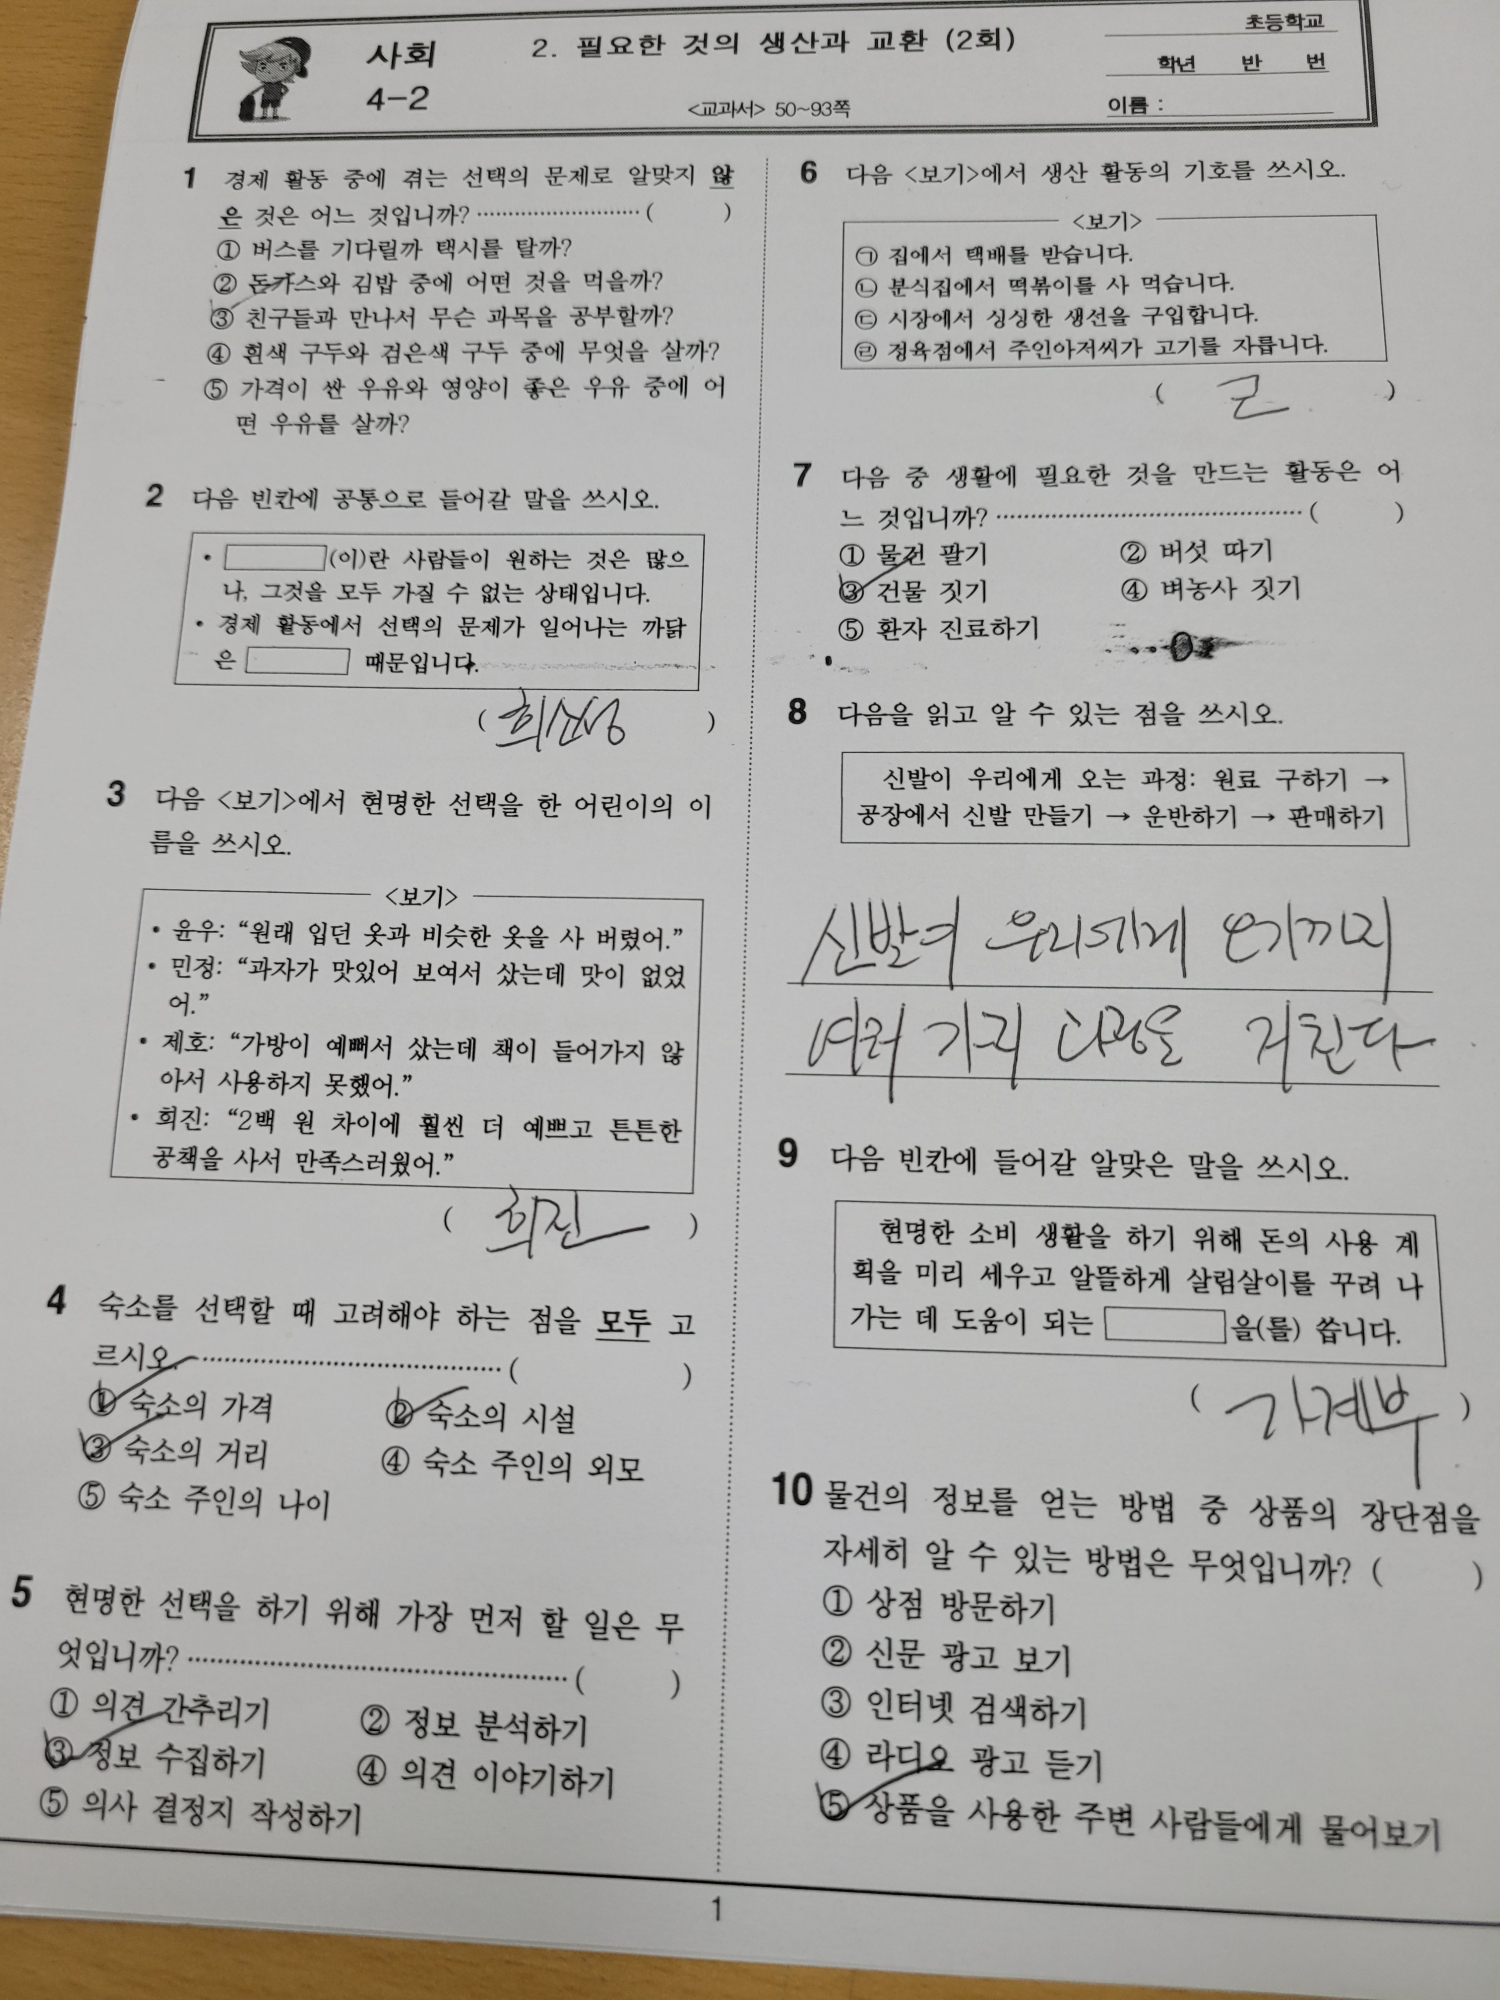 사회
4-2
2. 필요한 것의 생산과 교환 (2회)
<교과서> 50~93쪽
초등학교
학년 반 번
이름 :
1 경제 활동 중에 겪는 선택의 문제로 알맞지 않
은 것은 어느 것입니까? ( )
① 버스를 기다릴까 택시를 탈까?
② 돈가스와 김밥 중에 어떤 것을 먹을까?
③ 친구들과 만나서 무슨 과목을 공부할까?
④ 흰색 구두와 검은색 구두 중에 무엇을 살까?
⑤ 가격이 싼 우유와 영양이 좋은 우유 중에 어
떤 우유를 살까?
2 다음 빈칸에 공통으로 들어갈 말을 쓰시오.
• (이)란 사람들이 원하는 것은 많으
나, 그것을 모두 가질 수 없는 상태입니다.
• 경제 활동에서 선택의 문제가 일어나는 까닭
은 때문입니다.
( 희소성 )
3 다음 <보기>에서 현명한 선택을 한 어린이의 이
름을 쓰시오.
<보기>
• 윤우: “원래 입던 옷과 비슷한 옷을 사 버렸어.”
• 민정: “과자가 맛있어 보여서 샀는데 맛이 없었
어.”
• 제호: “가방이 예뻐서 샀는데 책이 들어가지 않
아서 사용하지 못했어.”
• 희진: “2백 원 차이에 훨씬 더 예쁘고 튼튼한
공책을 사서 만족스러웠어.”
( 희진 )
4 숙소를 선택할 때 고려해야 하는 점을 모두 고
르시오. ( )
① 숙소의 가격 ② 숙소의 시설
③ 숙소의 거리 ④ 숙소 주인의 외모
⑤ 숙소 주인의 나이
5 현명한 선택을 하기 위해 가장 먼저 할 일은 무
엇입니까? ( )
① 의견 간추리기 ② 정보 분석하기
③ 정보 수집하기 ④ 의견 이야기하기
⑤ 의사 결정지 작성하기
6 다음 <보기>에서 생산 활동의 기호를 쓰시오.
<보기>
㉠ 집에서 택배를 받습니다.
㉡ 분식집에서 떡볶이를 사 먹습니다.
㉢ 시장에서 싱싱한 생선을 구입합니다.
㉣ 정육점에서 주인아저씨가 고기를 자릅니다.
( ㄹ )
7 다음 중 생활에 필요한 것을 만드는 활동은 어
느 것입니까? ( )
① 물건 팔기 ② 버섯 따기
③ 건물 짓기 ④ 벼농사 짓기
⑤ 환자 진료하기
8 다음을 읽고 알 수 있는 점을 쓰시오.
신발이 우리에게 오는 과정: 원료 구하기 →
공장에서 신발 만들기 → 운반하기 → 판매하기
신발이 우리에게 오기까지
여러 가지 과정을 거친다
9 다음 빈칸에 들어갈 알맞은 말을 쓰시오.
현명한 소비 생활을 하기 위해 돈의 사용 계
획을 미리 세우고 알뜰하게 살림살이를 꾸려 나
가는 데 도움이 되는 을(를) 씁니다.
( 가계부 )
10 물건의 정보를 얻는 방법 중 상품의 장단점을
자세히 알 수 있는 방법은 무엇입니까? ( )
① 상점 방문하기
② 신문 광고 보기
③ 인터넷 검색하기
④ 라디오 광고 듣기
⑤ 상품을 사용한 주변 사람들에게 물어보기
1